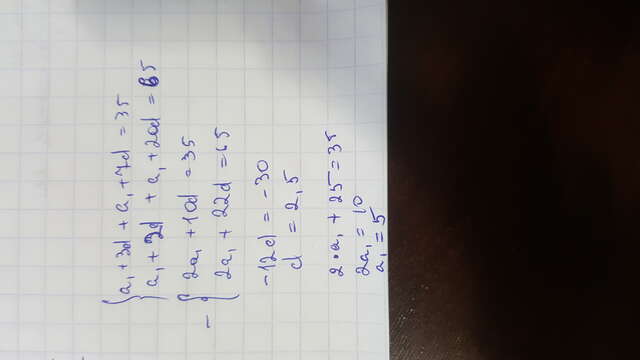 a₁ + 3d + a₁ + 7d = 35
a₁ + 2d + a₁ + 20d = 65
2a₁ + 10d = 35
2a₁ + 22d = 65
-12d = -30
d = 2,5
2·a₁ + 25 = 35
2a₁ = 10
a₁ = 5